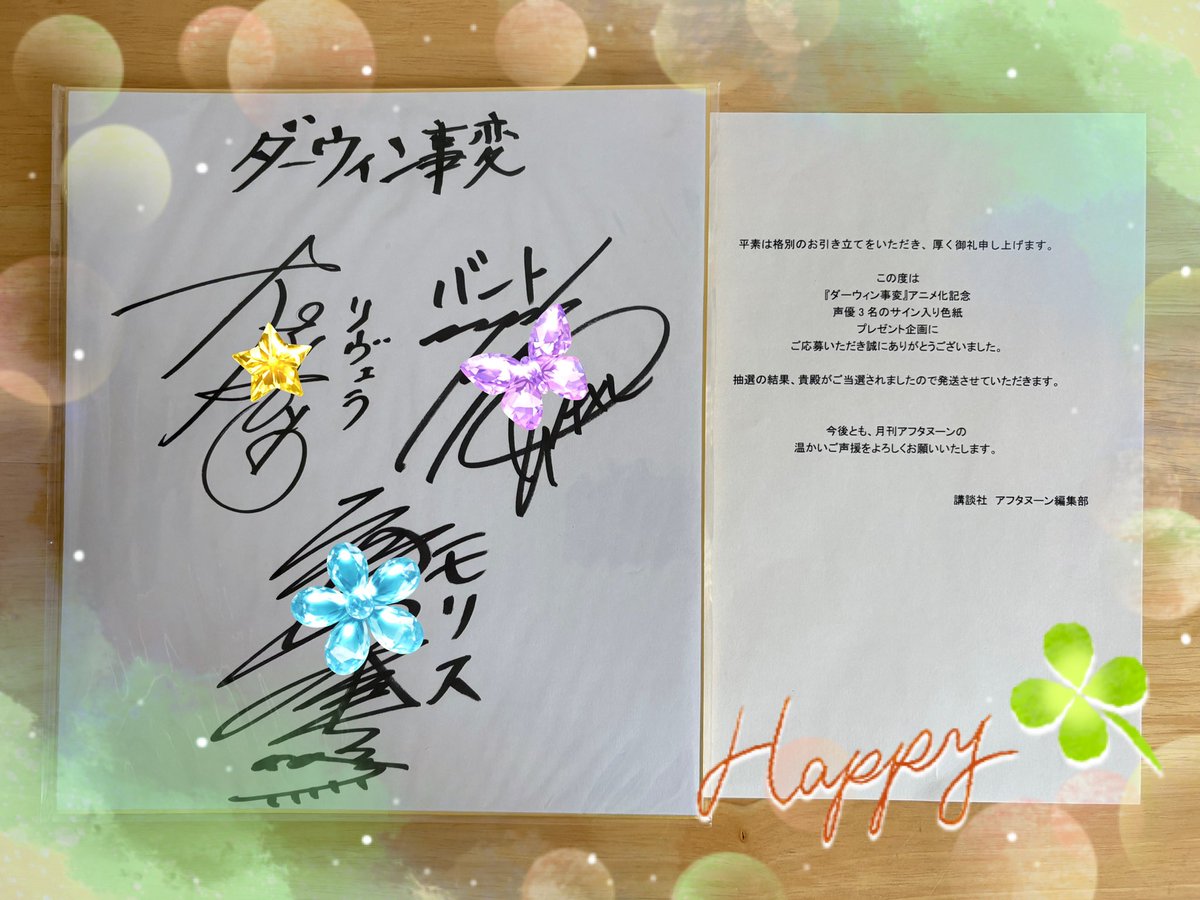 ダーウィン事変
リヴェラ
バート
モリス
平素は格別のお引き立てをいただき、厚く御礼申し上げます。
この度は
『ダーウィン事変』アニメ化記念
声優3名のサイン入り色紙
プレゼント企画に
ご応募いただき誠にありがとうございました。
抽選の結果、貴殿がご当選されましたので発送させていただきます。
今後とも、月刊アフタヌーンの
温かいご声援をよろしくお願いいたします。
講談社　アフタヌーン編集部
Happy